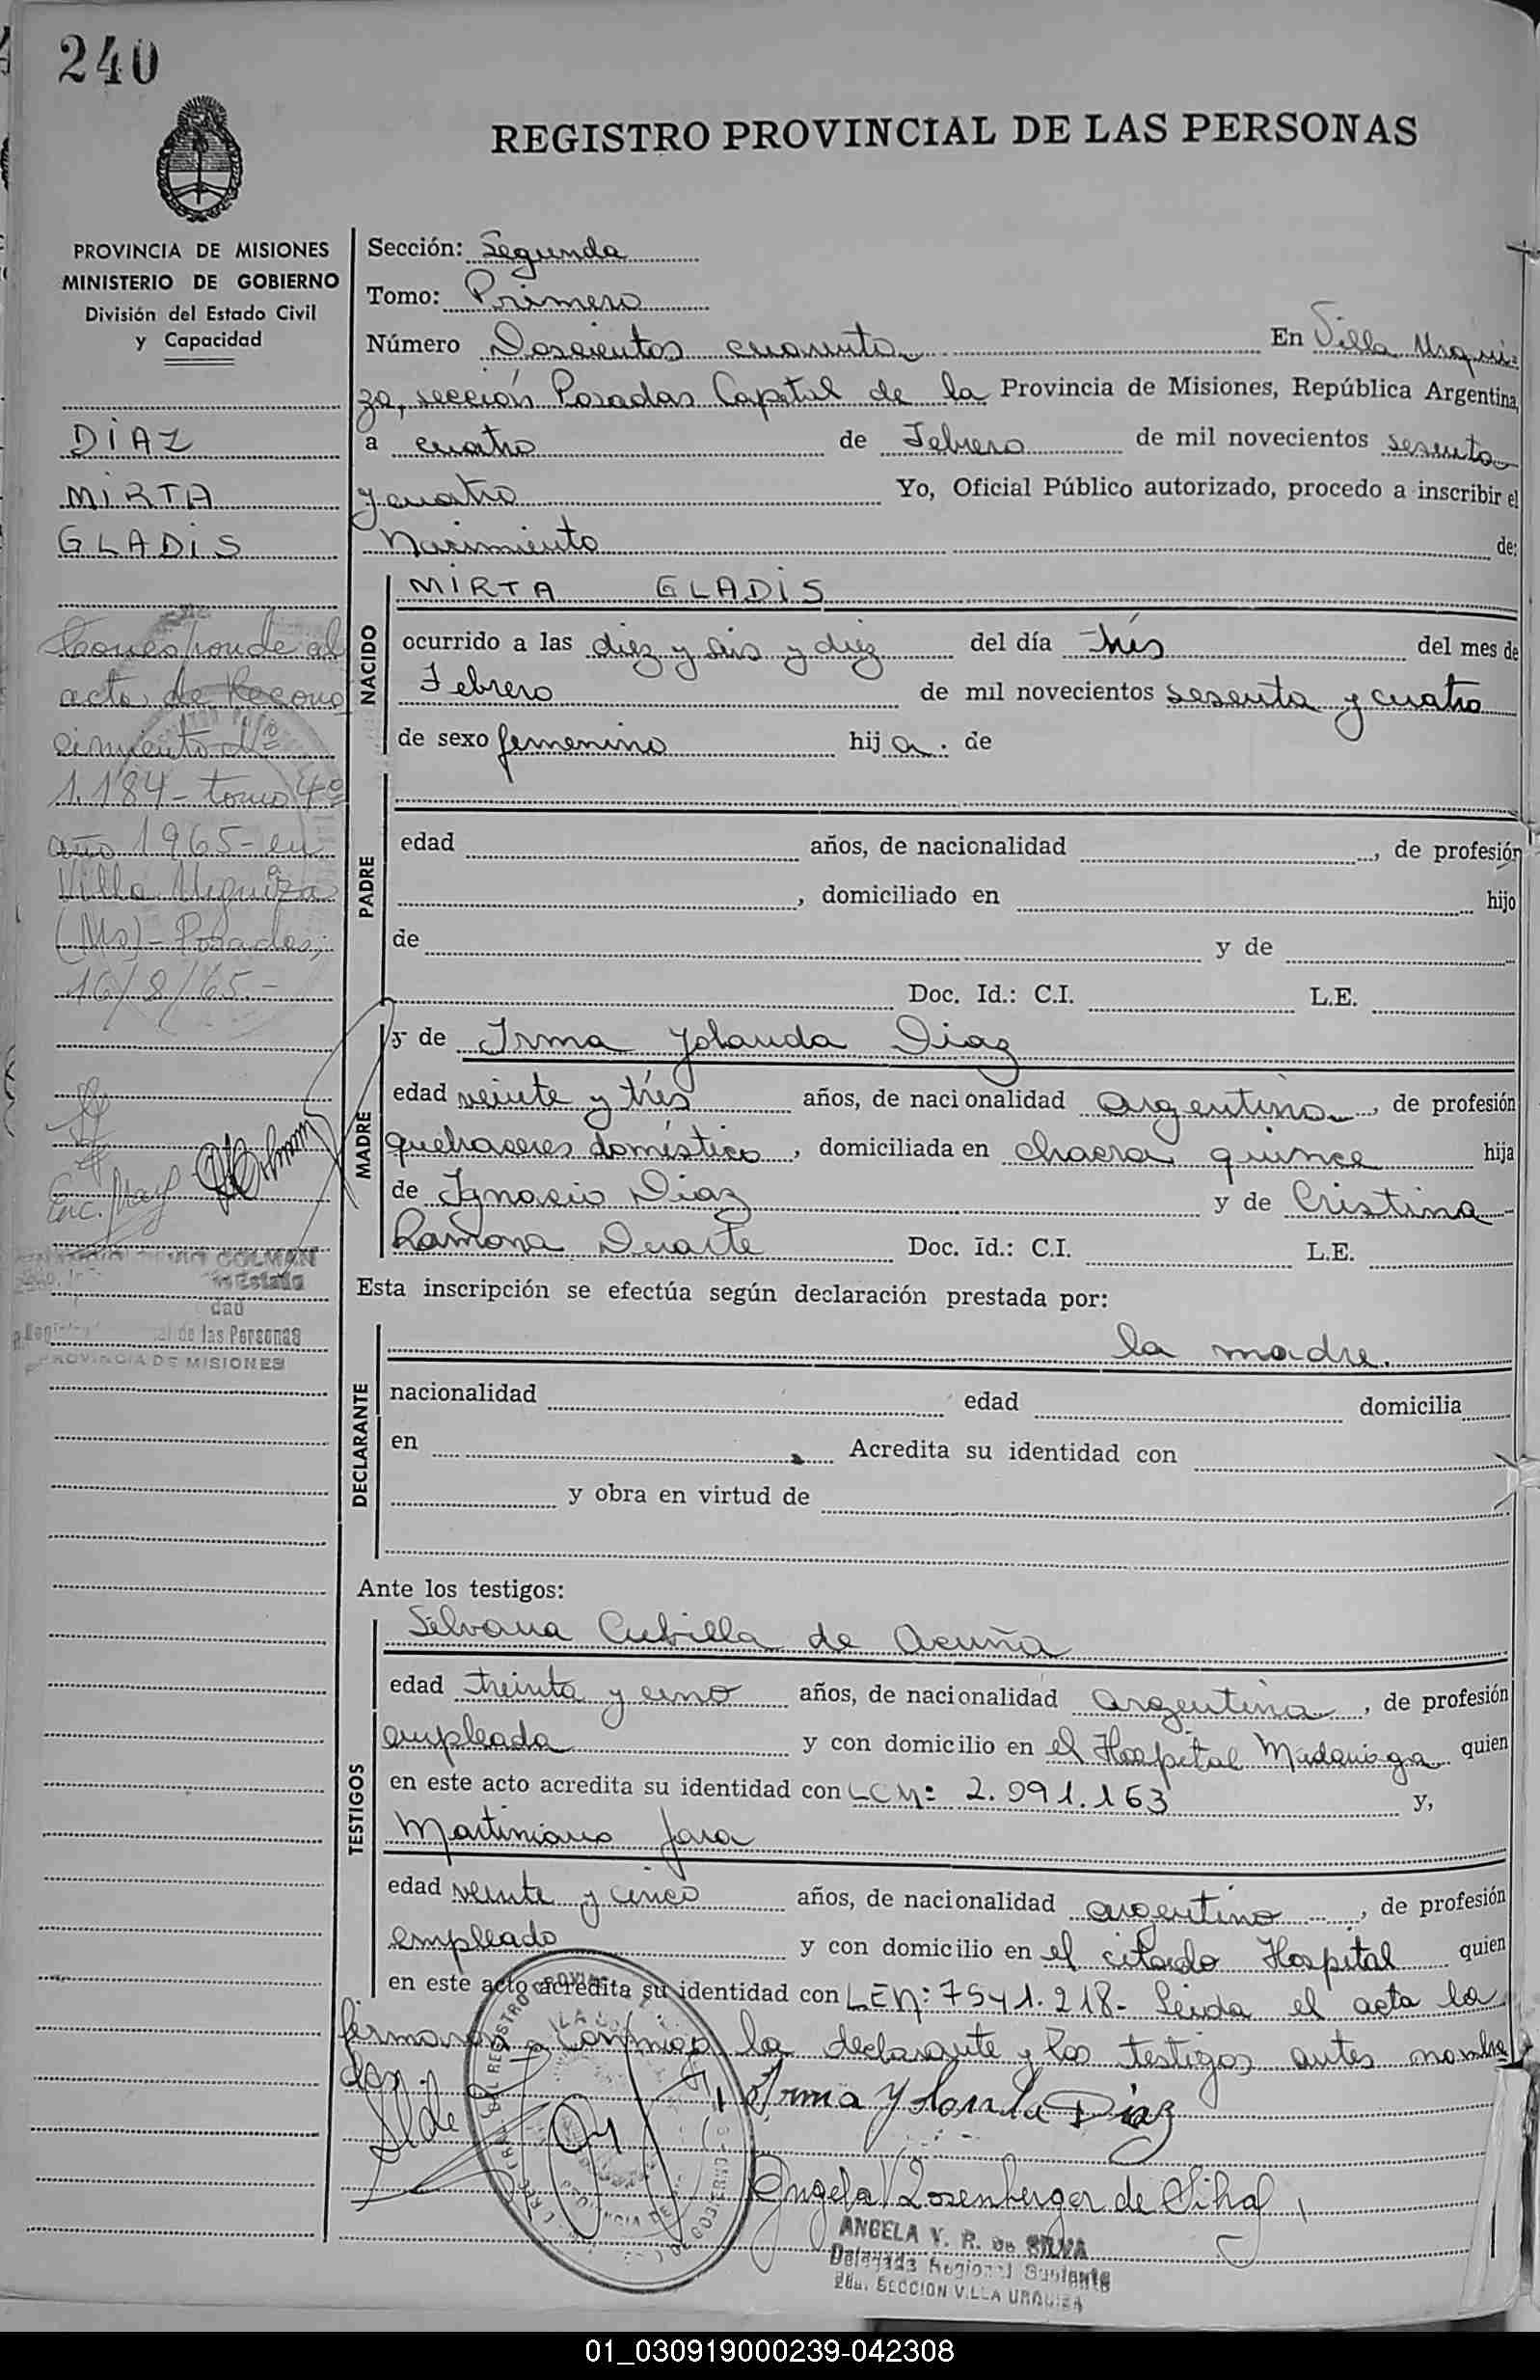 240
REGISTRO PROVINCIAL DE LAS PERSONAS
PROVINCIA DE MISIONES
MINISTERIO DE GOBIERNO
División del Estado Civil
y Capacidad
DIAZ
MIRTA
GLADIS
Corresponde al
acta de Recono
cimiento Nº
1.184 - tomo 4º
año 1965 - en
Villa Urquiza
(Ms) - Posadas,
16/8/65.-
Enc. May
COLMAN
Estado
dad
de las Personas
PROVINCIA DE MISIONES
Sección: Segunda
Tomo: Primero
Número Doscientos cuarenta En Villa Urqui-
za, sección Posadas Capital de la Provincia de Misiones, República Argentina,
a cuatro de Febrero de mil novecientos sesenta
y cuatro Yo, Oficial Público autorizado, procedo a inscribir el
Nacimiento de:
NACIDO
MIRTA GLADIS
ocurrido a las diez y seis y diez del día trés del mes de
Febrero de mil novecientos sesenta y cuatro
de sexo femenino hij a. de
PADRE
edad años, de nacionalidad , de profesión
, domiciliado en hijo
de y de
Doc. Id.: C.I. L.E.
MADRE
y de Irma Yolanda Diaz
edad veinte y trés años, de nacionalidad argentina , de profesión
quehaceres doméstico , domiciliada en chacra quince hija
de Ignacio Diaz y de Cristina
Ramona Duarte Doc. Id.: C.I. L.E.
Esta inscripción se efectúa según declaración prestada por:
DECLARANTE
la madre.
nacionalidad edad domicilia
en Acredita su identidad con
y obra en virtud de
Ante los testigos:
TESTIGOS
Silvana Cubilla de Acuña
edad treinta y uno años, de nacionalidad argentina , de profesión
empleada y con domicilio en el Hospital Madariaga quien
en este acto acredita su identidad con LCN: 2.991.163 y,
Martiniano Jara
edad veinte y cinco años, de nacionalidad argentino , de profesión
empleado y con domicilio en el citado Hospital quien
en este acto acredita su identidad con LEN: 7541.218- Leida el acta la
firmaron conmigo la declarante y los testigos antes nombra
dos.
S. de
Irma Yolanda Diaz
Angela V Rosenberger de Silva
ANGELA V. R. DE SILVA
Delegada Regional Suplente
2da. SECCION VILLA URQUIZA
01_030919000239-042308